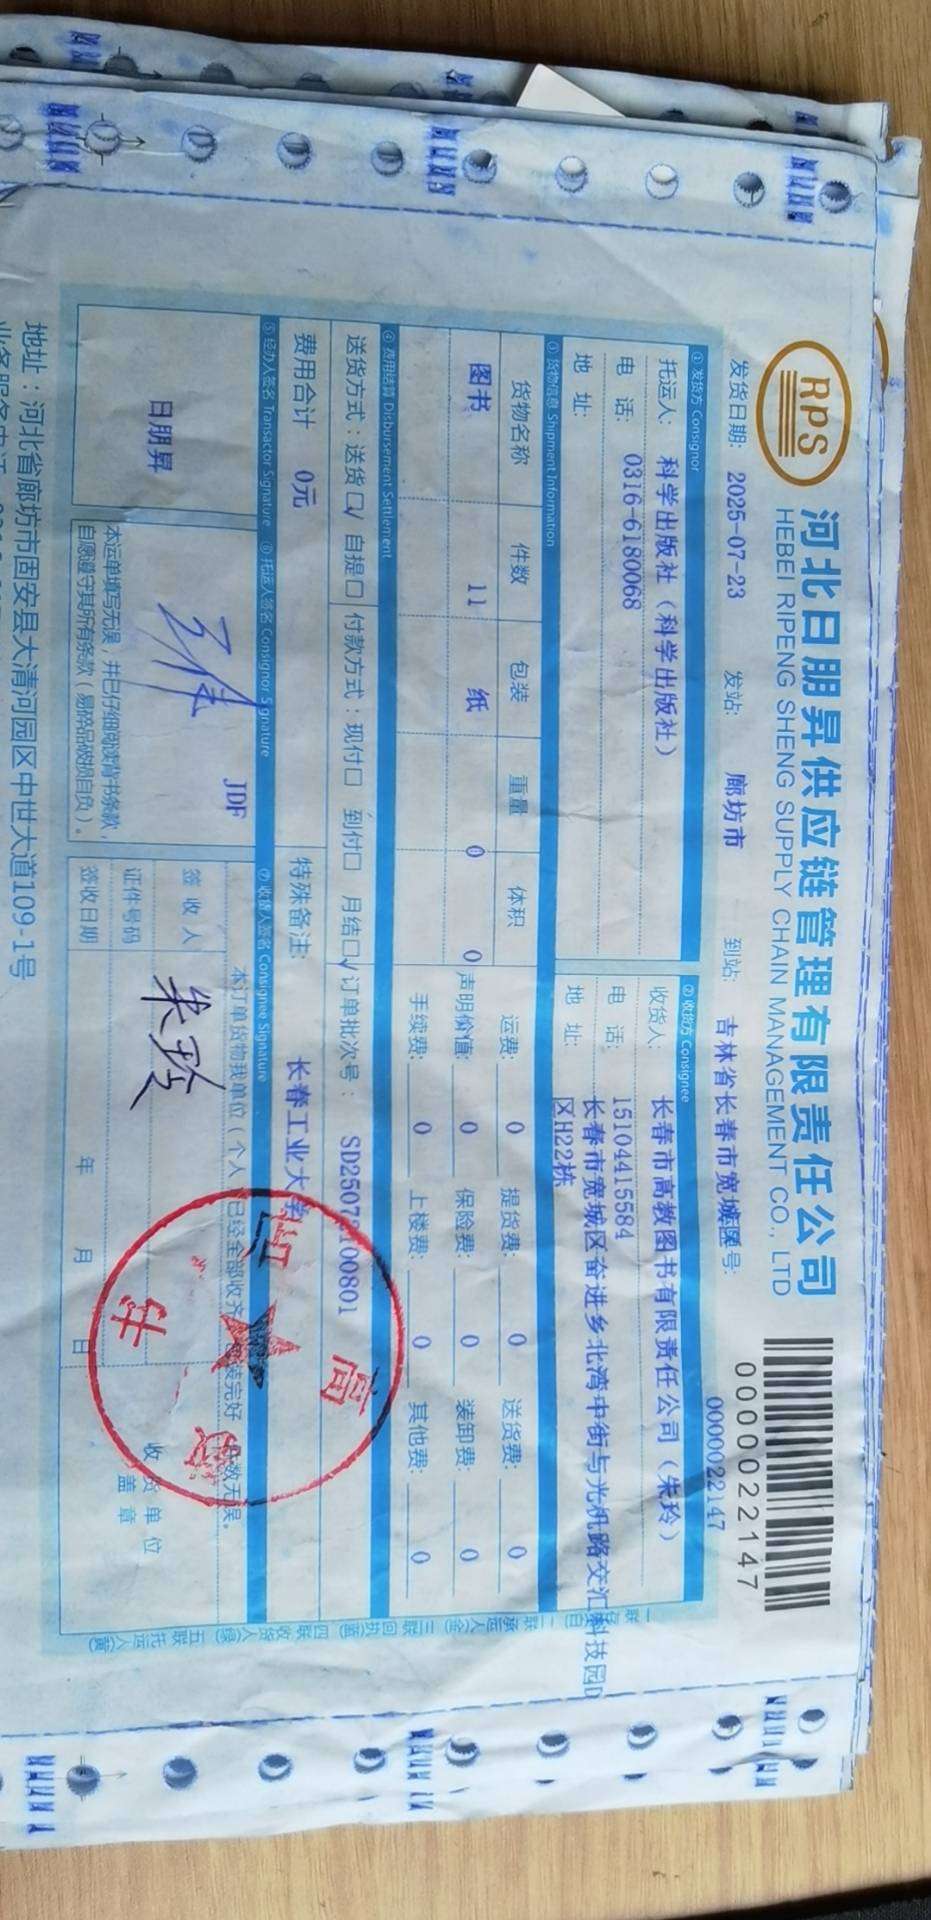 RPS
河北日朋昇供应链管理有限责任公司
HEBEI RIPENG SHENG SUPPLY CHAIN MANAGEMENT CO., LTD
0000022147
0000022147
发货日期: 2025-07-23 发站: 廊坊市 到站: 吉林省长春市宽城区 号:
① 发货方 Consignor
托运人: 科学出版社（科学出版社）
电 话: 0316-6180068
地 址:
② 收货方 Consignee
收货人: 长春市高教图书有限责任公司（朱玲）
电 话: 15104415584
地 址: 长春市宽城区奋进乡北湾中街与光机路交汇科技园D
区H22栋
③ 货物信息 Shipment Information
货物名称 件数 包装 重量 体积
图书 11 纸 0 0
运费: 0 提货费: 0 送货费: 0
声明价值: 0 保险费: 0 装卸费: 0
手续费: 0 上楼费: 0 其他费: 0
④ 费用结算 Disbursement Settlement
送货方式：送货☑ 自提□ 付款方式：现付□ 到付□ 月结☑ 订单批次号：
费用合计 0元 特殊备注: 长春工业大学
⑤ 经办人签名 Transactor Signature ⑥ 托运人签名 Consignor Signature ⑦ 收货人签名 Consignee Signature
日朋昇
JDF
本运单填写无误，并已仔细阅读背书条款，
自愿遵守其所有条款（易碎品破损自负）。
签 收 人 朱玲
证件号码
签收日期 年 月 日
收 货 单 位
盖 章
地址：河北省廊坊市固安县大清河园区中世大道109-1号